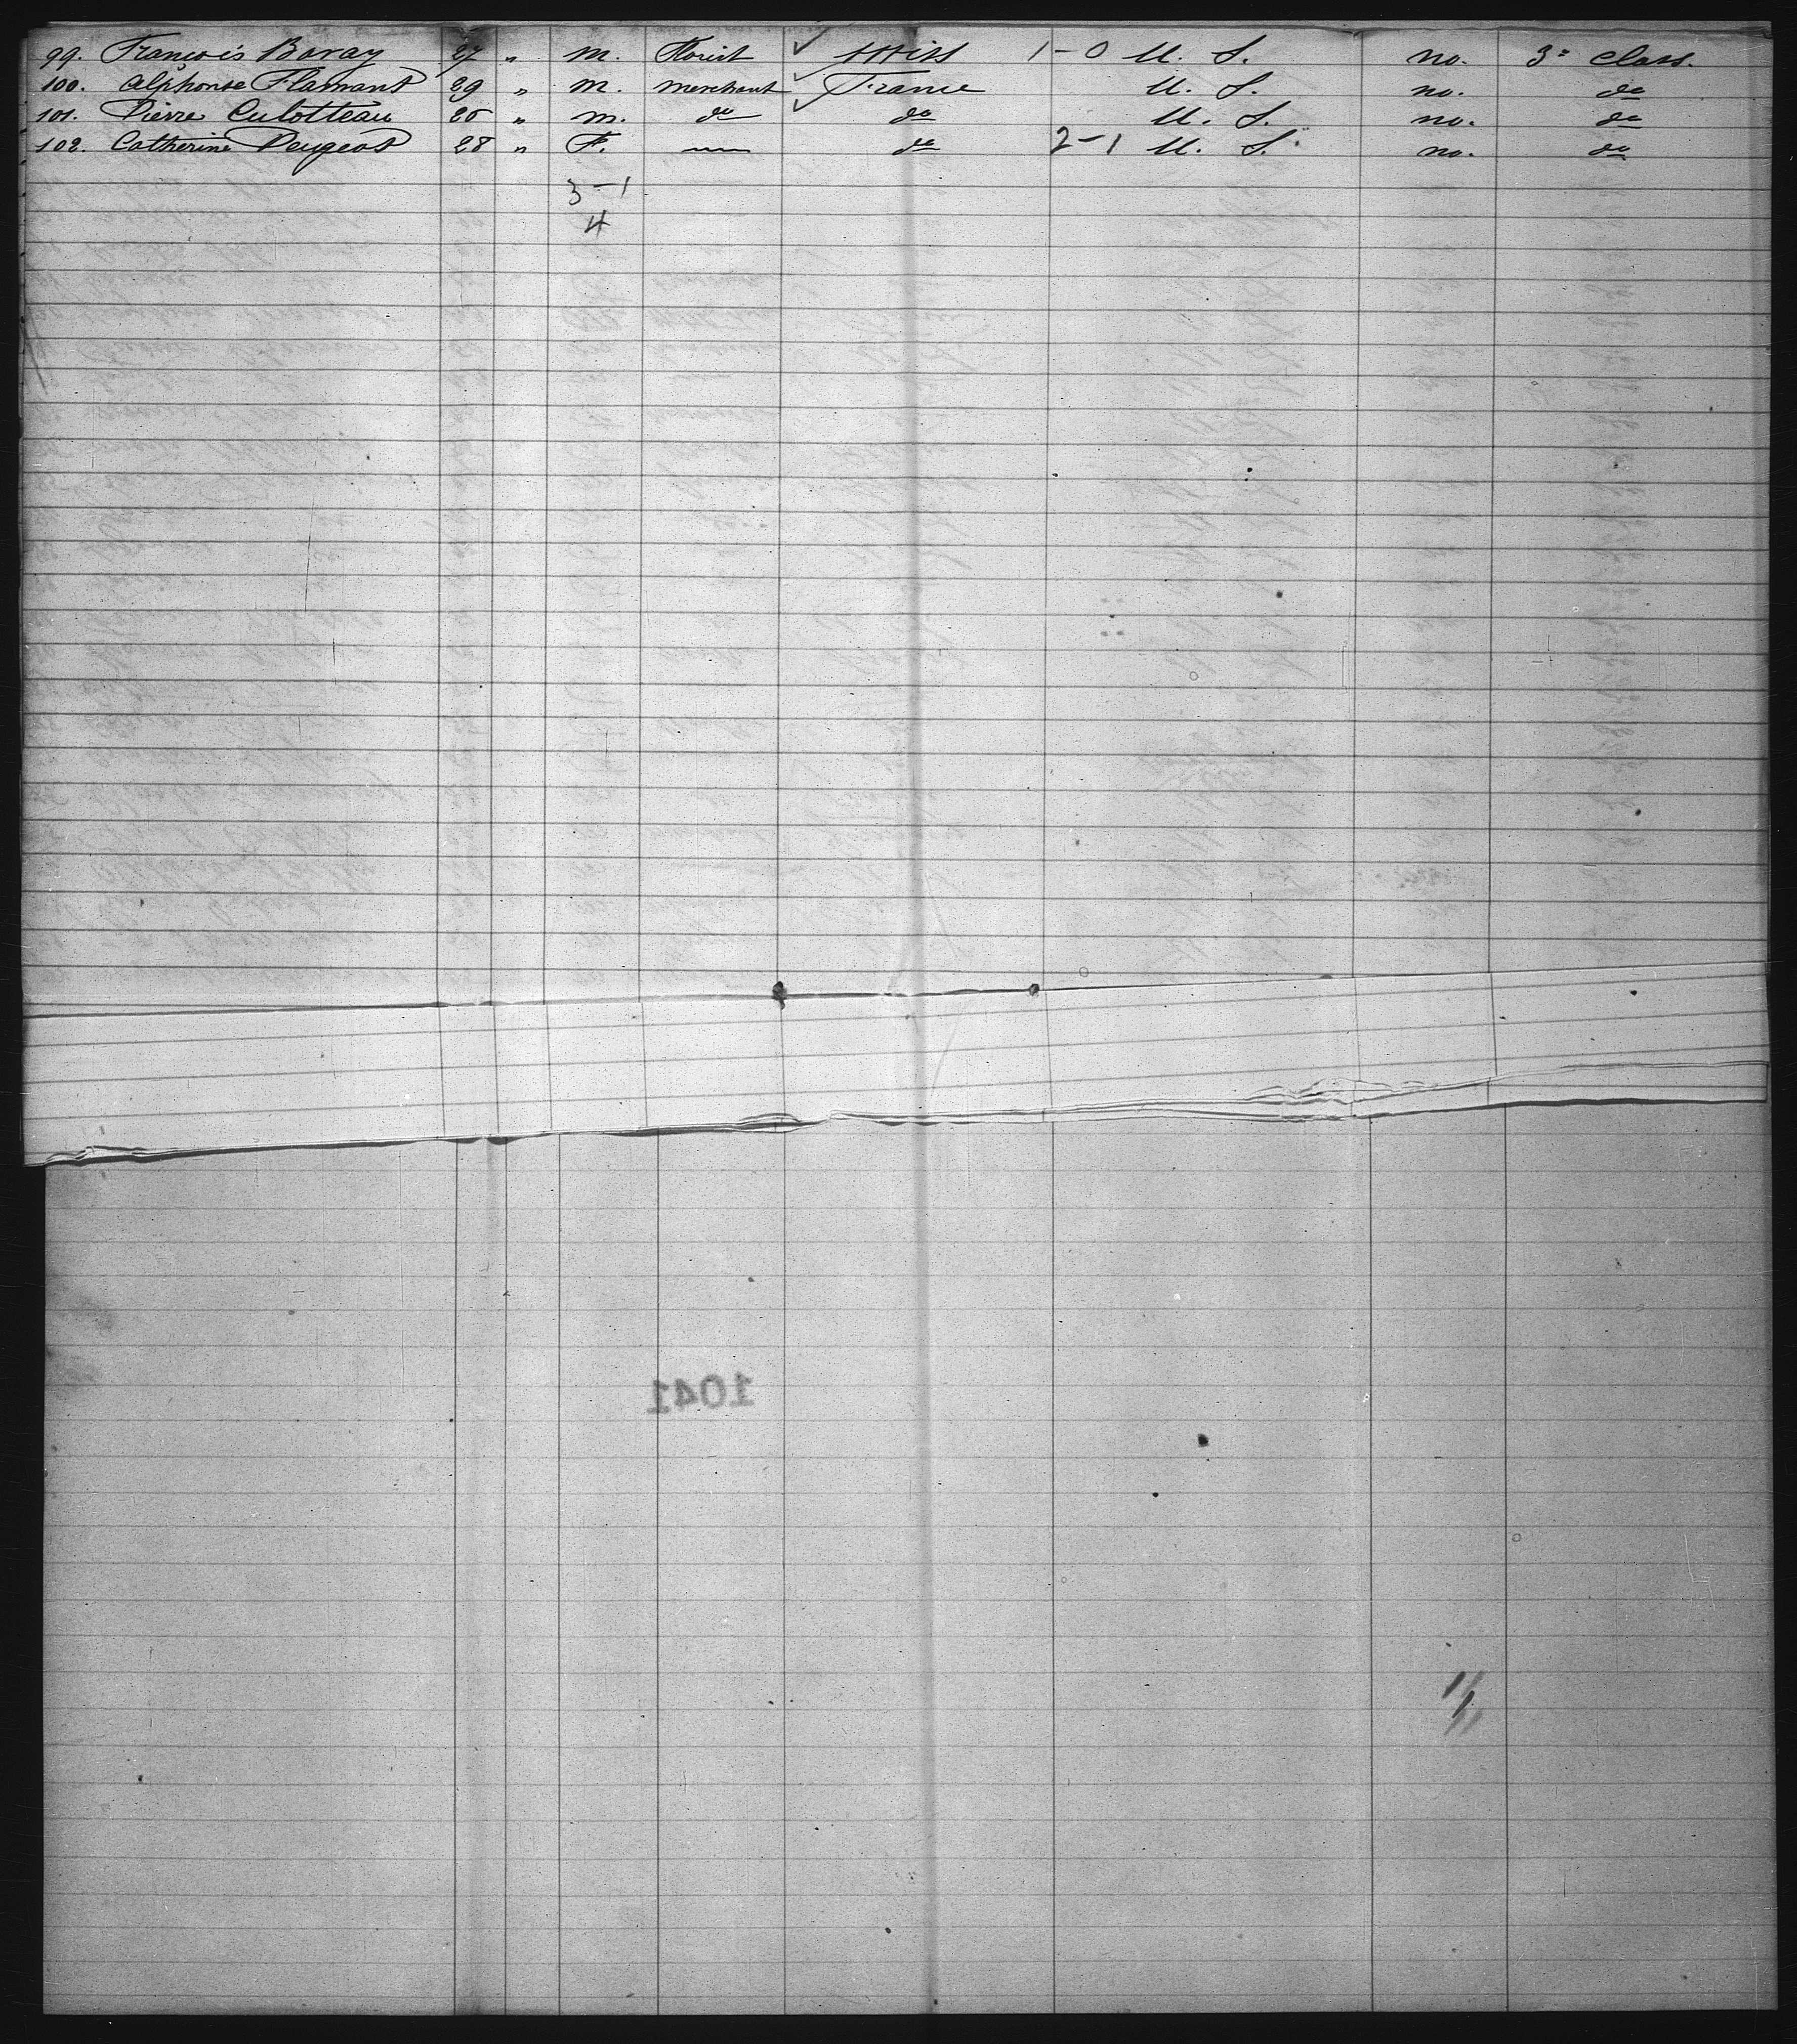 99. François Boray 27 " m. florist ✓ Swiss 1-0 U. S. no. 3e class.
100. Alphonse Flamant 29 " m. merchant ✓ France U. S. no. do
101. Pierre Culotteau 25 " m. do ✓ do U. S. no. do
102. Catherine Peugeot 28 " F. — do 2-1 U. S. no. do
3-1
4
1041